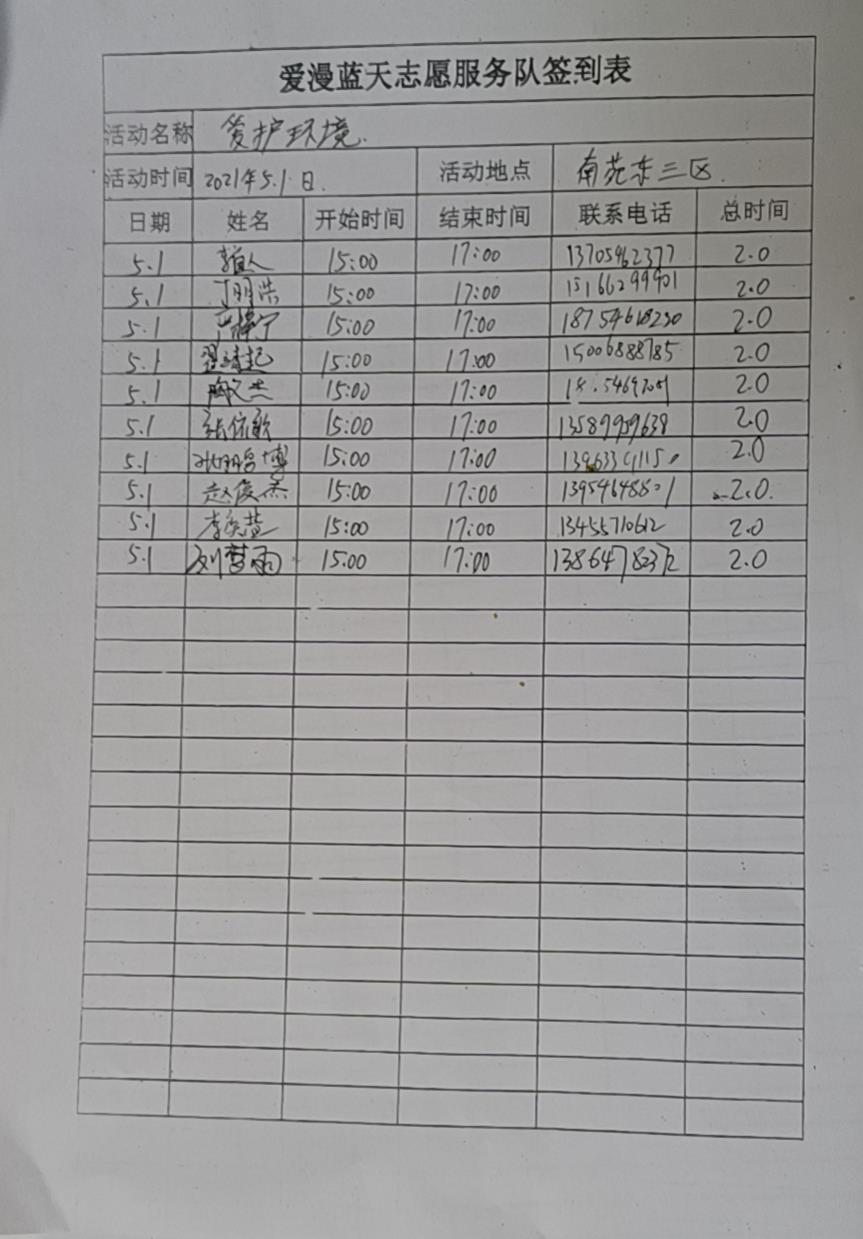 爱漫蓝天志愿服务队签到表
活动名称 爱护环境.
活动时间 2021年5.1日. 活动地点 南苑东三区.
日期 姓名 开始时间 结束时间 联系电话 总时间
5.1 15:00 17:00 13705462377 2.0
5.1 丁明浩 15:00 17:00 15166299901 2.0
5.1 15:00 17:00 2.0
5.1 15:00 17:00 15006888785 2.0
5.1 15:00 17:00 2.0
5.1 张依歌 15:00 17:00 2.0
5.1 15:00 17:00 2.0
5.1 赵俊杰 15:00 17:00 2.0.
5.1 15:00 17:00 13455710612 2.0
5.1 刘梦雨 15:00 17:00 13864782372 2.0